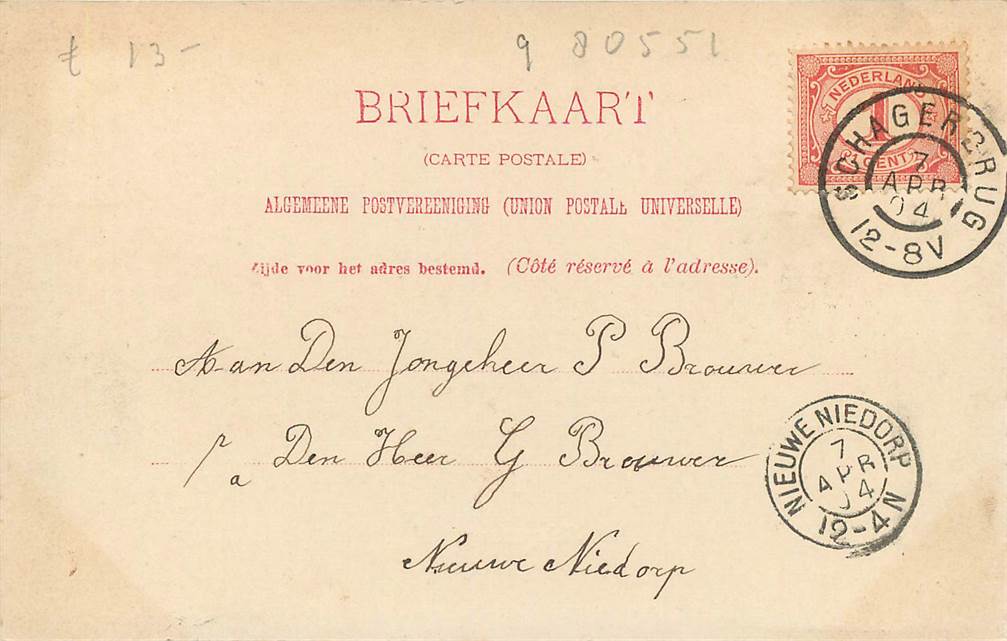 € 13-
9 80551
NEDERLAND
1
CENT
SCHAGERBRUG
7
APR
04
12-8V
BRIEFKAART
(CARTE POSTALE)
ALGEMEENE POSTVEREENIGING (UNION POSTALE UNIVERSELLE)
Zijde voor het adres bestemd. (Côté réservé à l'adresse).
Aan Den Jongeheer P Brouwer
p/a Den Heer G Brouwer
Nieuwe Niedorp
NIEUWE NIEDORP
7
APR
04
12-4N